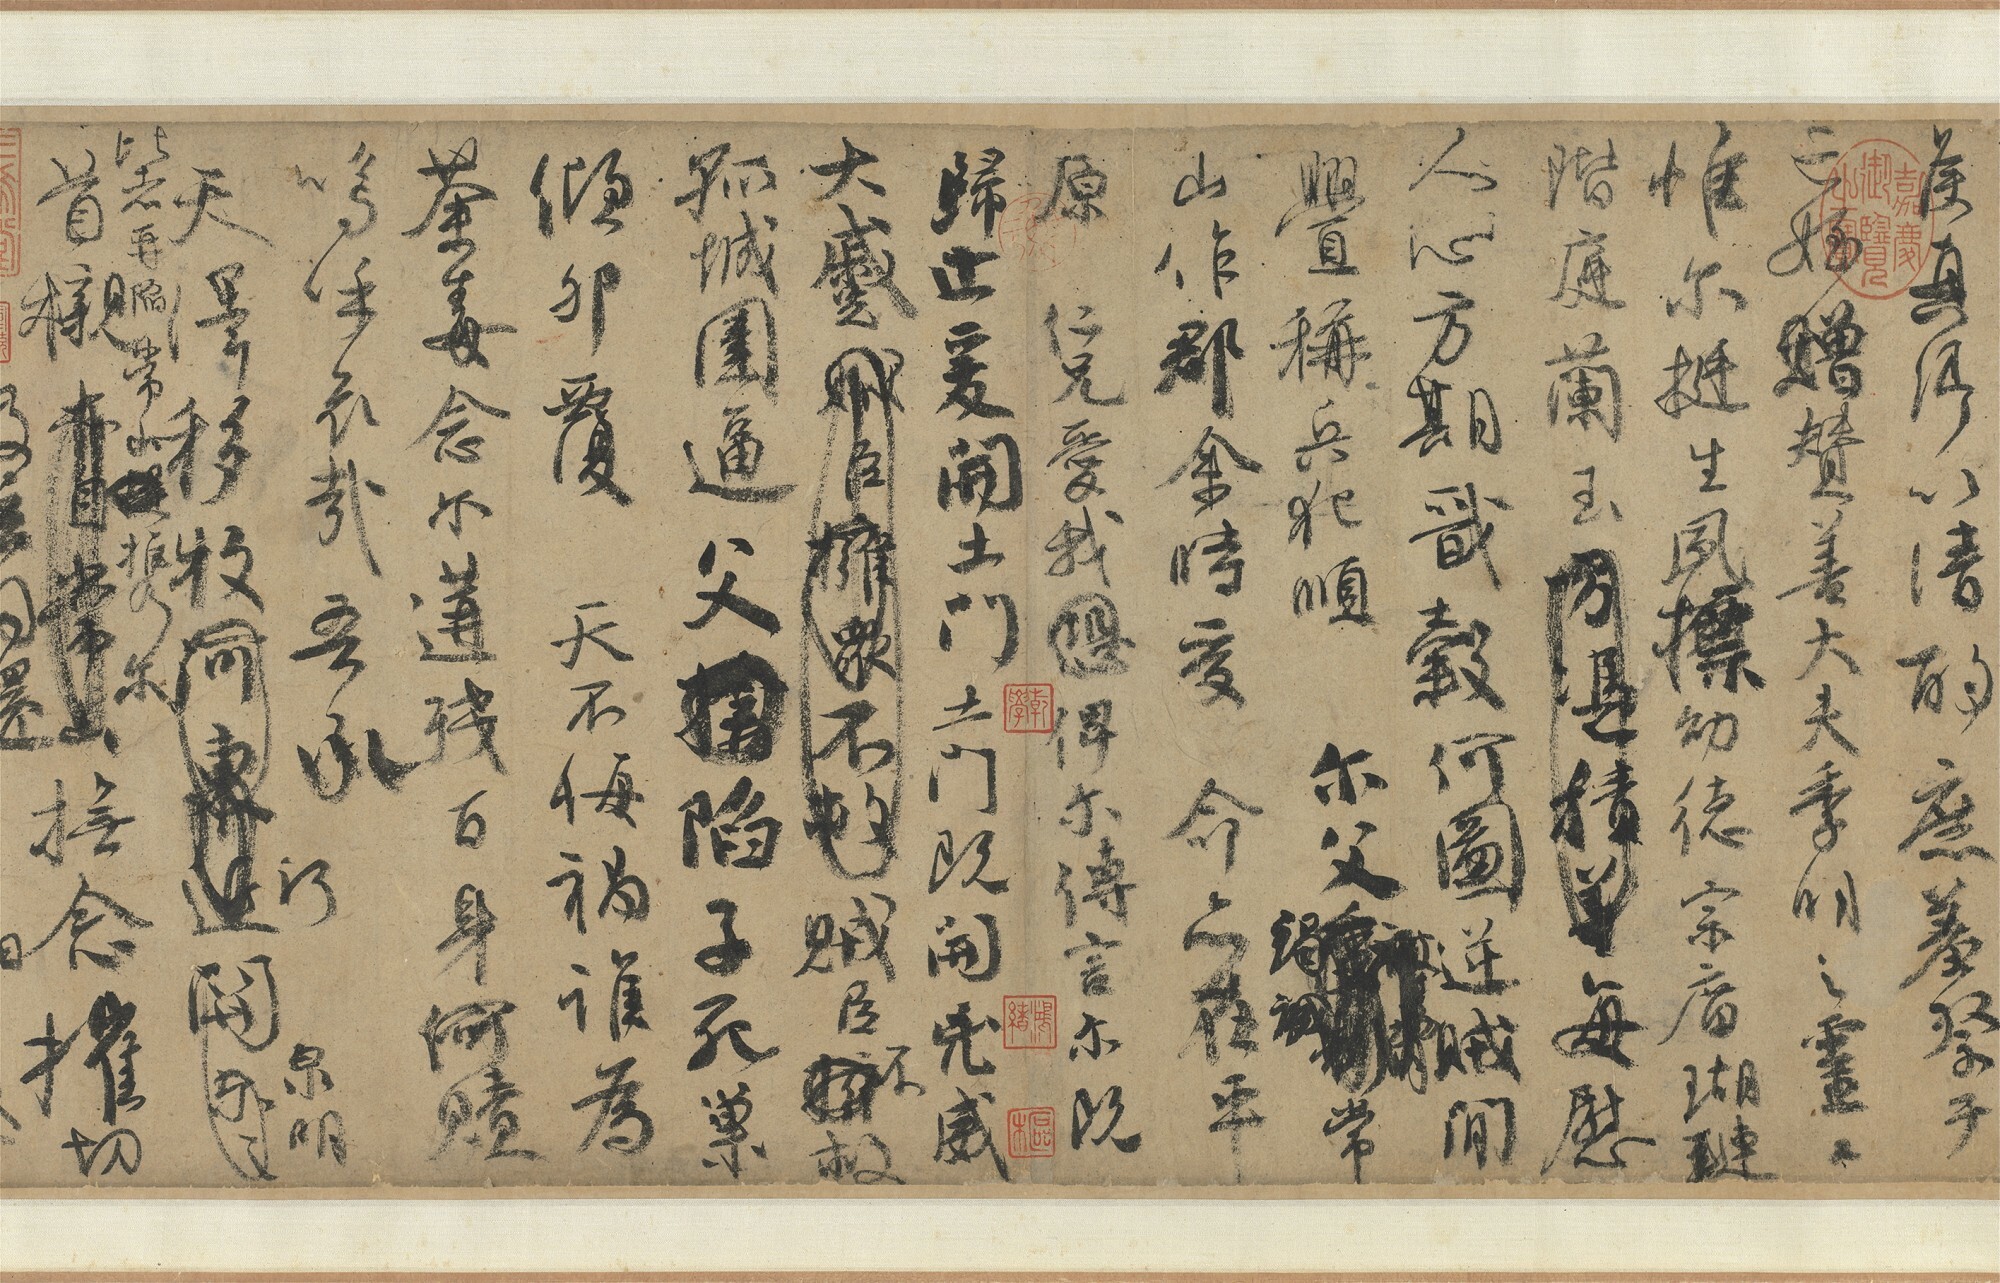 侯真卿以清酌庶羞祭于
亡姪贈贊善大夫季明之靈曰
惟爾挺生夙標幼德宗廟瑚璉
階庭蘭玉方憑積善每慰
人心方期戩穀何圖逆賊間
釁稱兵犯順爾父竭誠常
山作郡余時受命亦在平
原仁兄愛我俾爾傳言爾既
歸止爰開土門土門既開兇威
大蹙賊臣擁眾不救賊臣不救
孤城圍逼父陷子死巢
傾卵覆天不悔禍誰為
荼毒念爾遘殘百身何贖
嗚乎哀哉吾承
天澤移牧河東近河關泉明
比者再陷常山攜爾
首櫬及茲同還撫念摧切